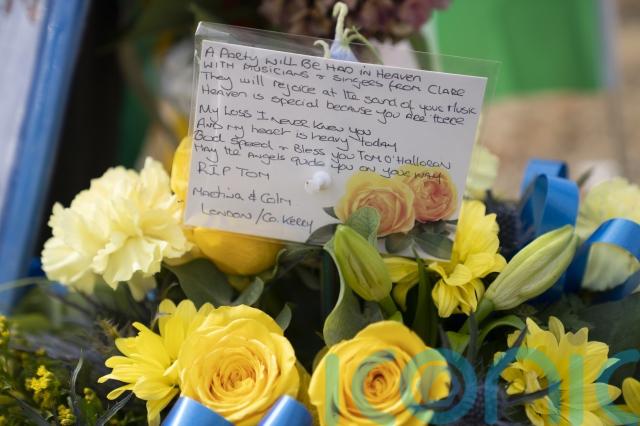 A PARTY WILL BE HAD IN HEAVEN
WITH MUSICIANS & SINGERS FROM CLARE
They will rejoice at the sound of your MUSIC
HEAVEN is special because you are there
My LOSS I NEVER KNEW YOU
AND My HEART is HEAVY TODAY
GOD SPEED & BLESS YOU TOM O'HALLORAN
MAY THE ANGELS GUIDE YOU ON YOUR WAY
RIP TOM
MARTINA & COLM
LONDON / CO. KERRY
iconic